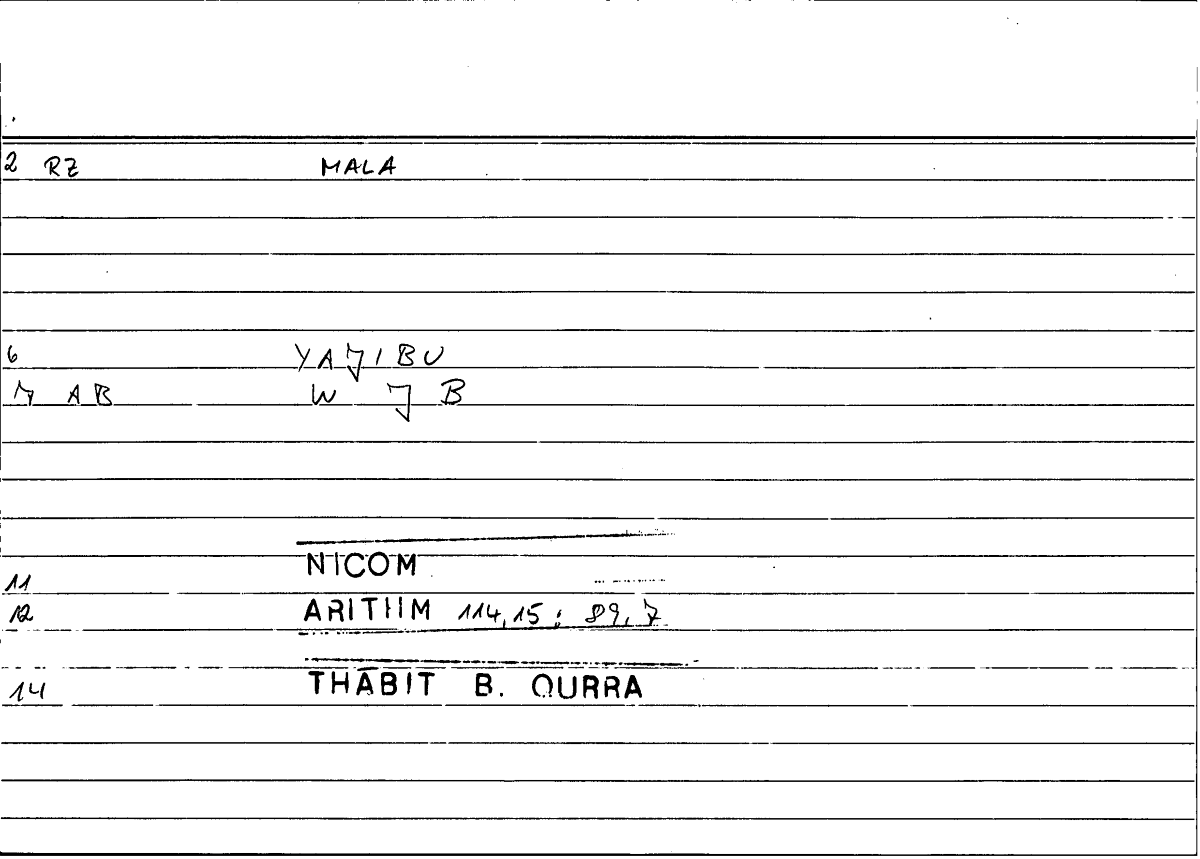 2 RZ MALA
6 YAJIBU
7 AB W J B
11 NICOM
12 ARITHM 114,15 ; 89,7
14 THĀBIT B. QURRA